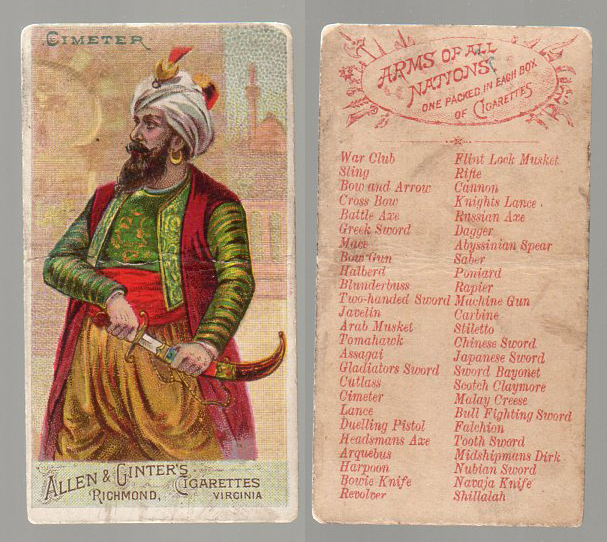 CIMETER
ALLEN & GINTER'S
RICHMOND, CIGARETTES
VIRGINIA
ARMS OF ALL
NATIONS.
ONE PACKED IN EACH BOX
OF CIGARETTES
War Club
Sling
Bow and Arrow
Cross Bow
Battle Axe
Greek Sword
Mace
Bow Gun
Halberd
Blunderbuss
Two-handed Sword
Javelin
Arab Musket
Tomahawk
Assagai
Gladiators Sword
Cutlass
Cimeter
Lance
Duelling Pistol
Headsmans Axe
Arquebus
Harpoon
Bowie Knife
Revolver
Flint Lock Musket
Rifle
Cannon
Knights Lance
Russian Axe
Dagger
Abyssinian Spear
Saber
Poniard
Rapier
Machine Gun
Carbine
Stiletto
Chinese Sword
Japanese Sword
Sword Bayonet
Scotch Claymore
Malay Creese
Bull Fighting Sword
Falchion
Tooth Sword
Midshipmans Dirk
Nubian Sword
Navaja Knife
Shillalah